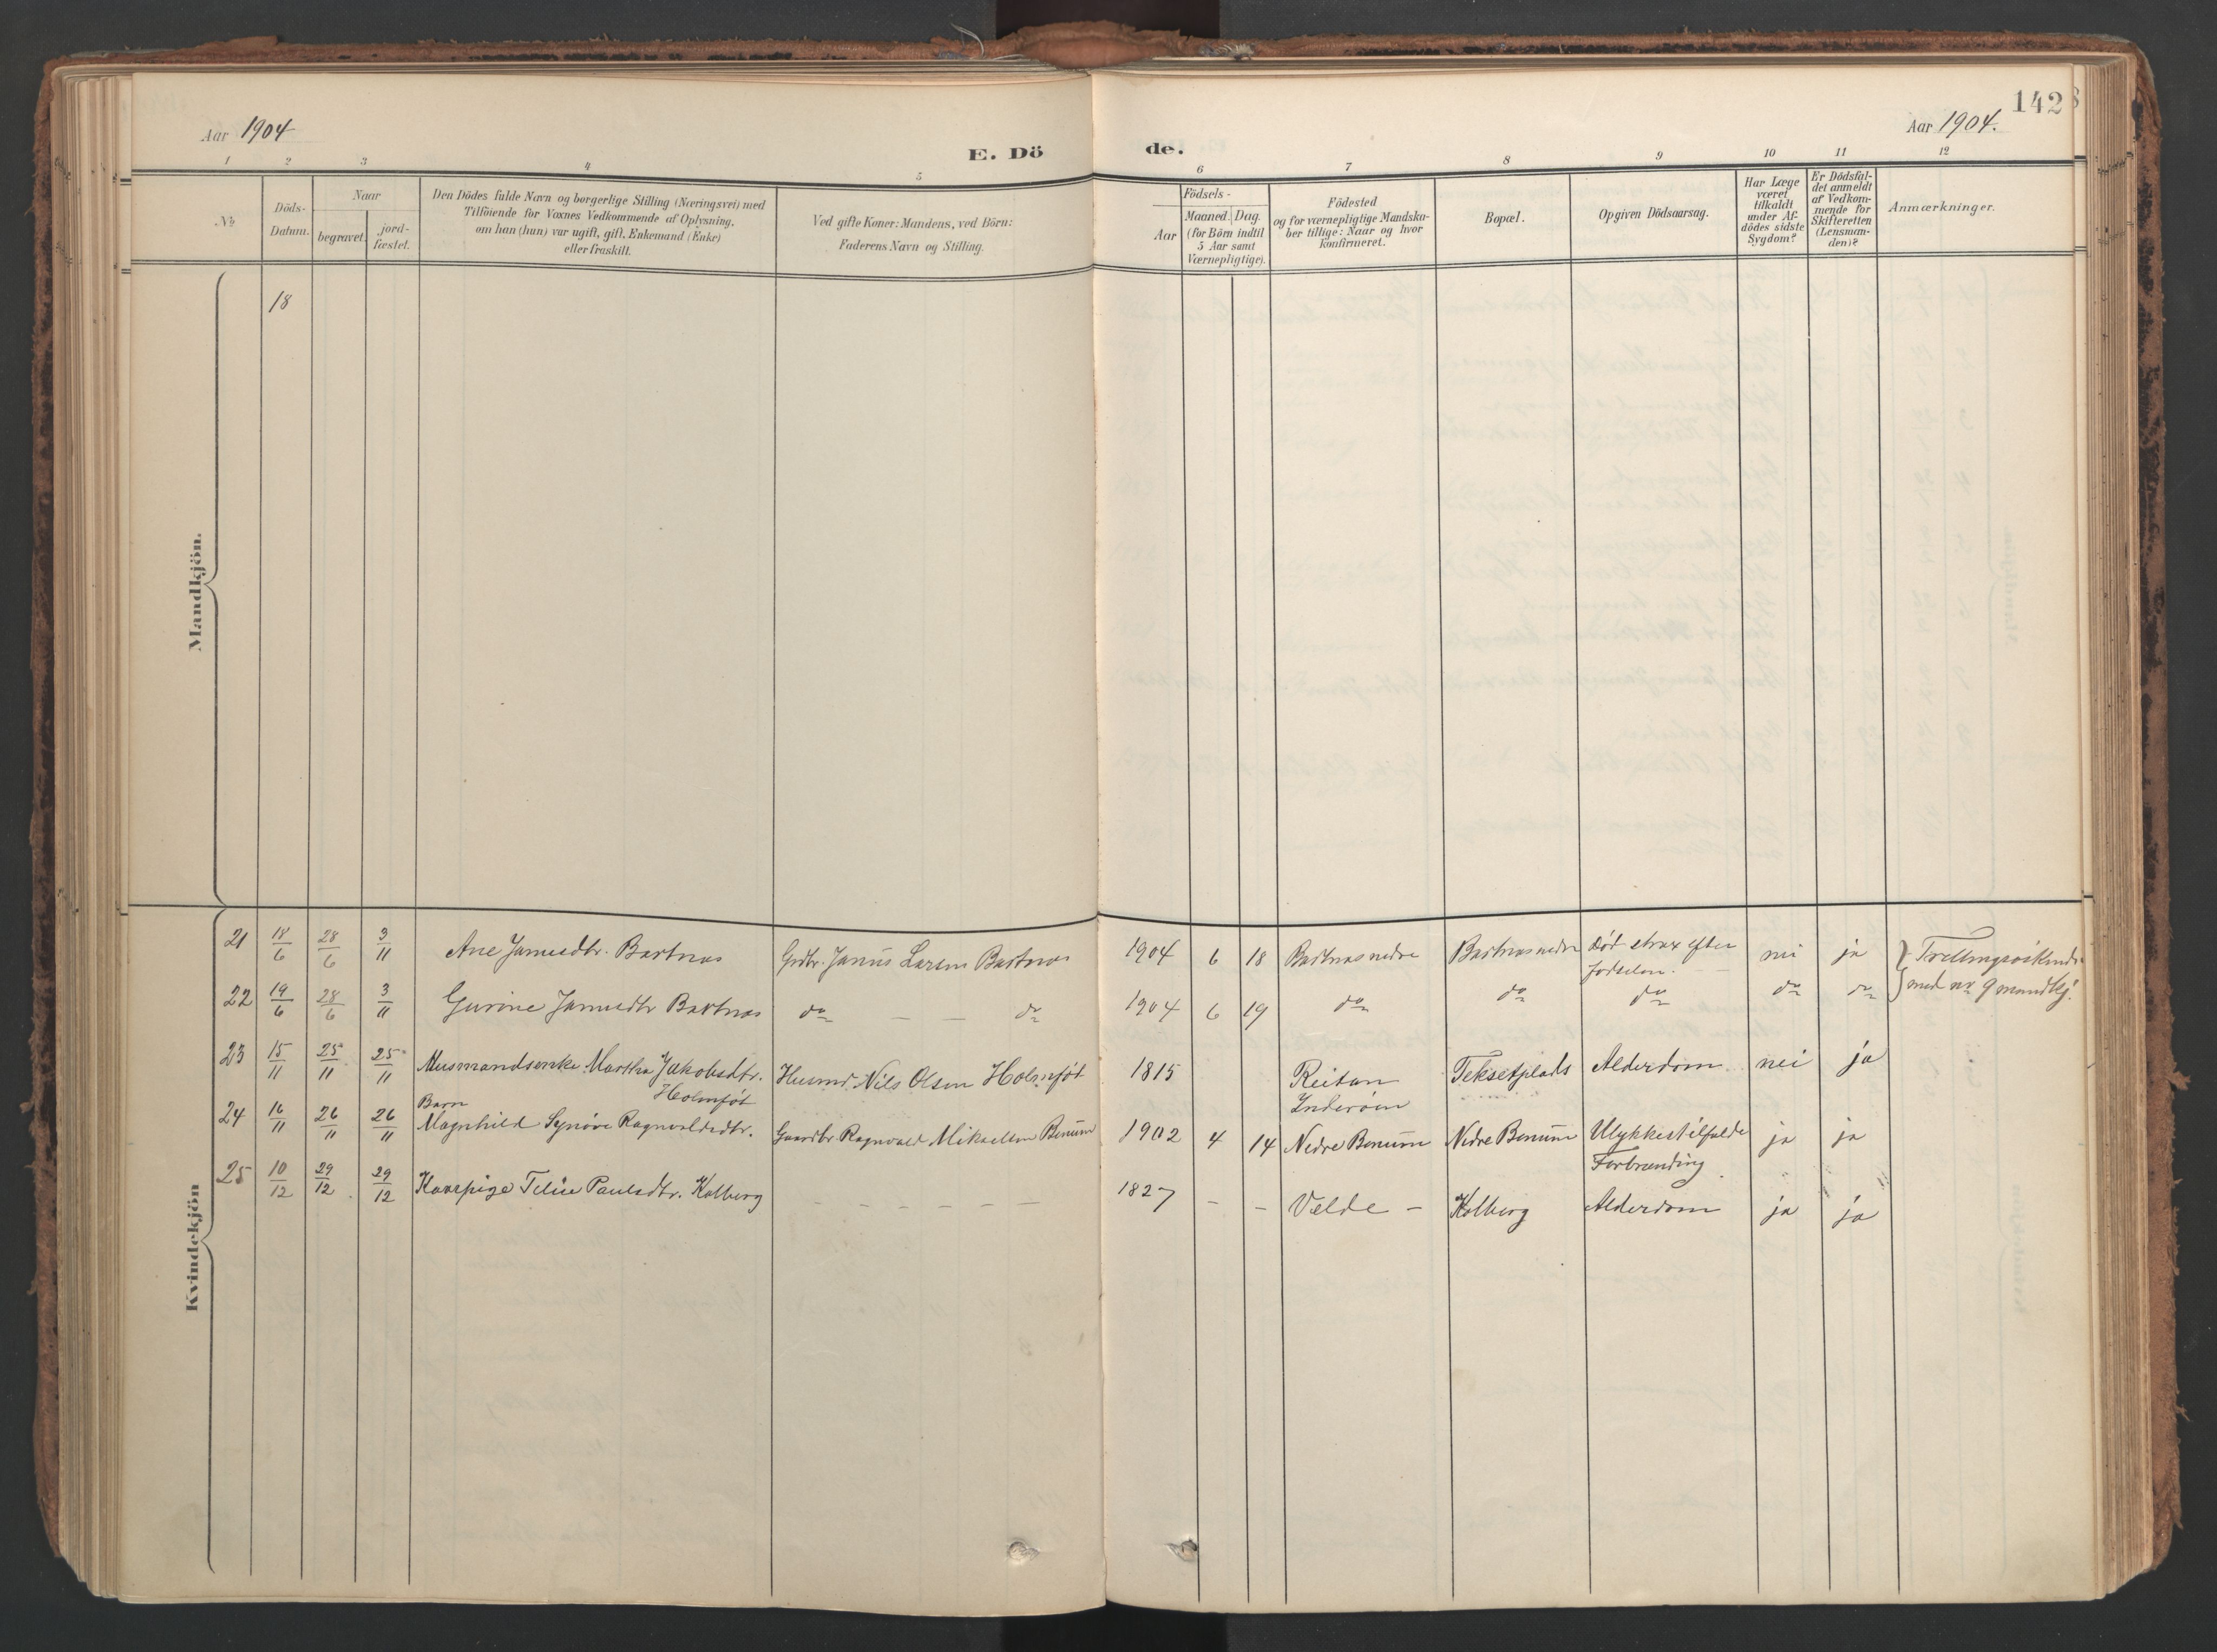 Aar 1904
E. Dö
de.
Aar 1904.
142
1 2 3 4 5 6 7 8 9 10 11 12
No
Döds-
Datum.
Naar
begravet.
jord-
fæstet.
Den Dödes fulde Navn og borgerlige Stilling (Næringsvei) med
Tilföiende for Voxnes Vedkommende af Oplysning,
om han (hun) var ugift, gift, Enkemand (Enke)
eller fraskilt.
Ved gifte Koner: Mandens, ved Börn:
Faderens Navn og Stilling.
Födsels-
Aar
Maaned. Dag.
(for Börn indtil
5 Aar samt
Værnepligtige).
Födested
og for værnepligtige Mandska-
ber tillige: Naar og hvor
konfirmeret.
Bopæl.
Opgiven Dödsaarsag.
Har Læge
været
tilkaldt
under Af-
dödes sidste
Sygdom?
Er Dödsfal-
det anmeldt
af Vedkom-
mende for
Skifteretten
(Lensman-
den)?
Anmærkninger.
Mandkjön.
18
Kvindekjön
21 18/6 28/6 3/11 Ane Janusdtr. Bartnæs Grdbr. Janus Larsen Bartnæs 1904 6 18 Bartnæs nedre Bartnæs nedre Död strax efter nei ja
födselen.
} Trillingsöskende
med no 9 mandkj.
22 19/6 28/6 3/11 Gurine Janusdtr Bartnæs do — — do 1904 6 19 do do do do do
23 15/11 25/11 25/11 Husmandsenke Martha Jakobsdtr. Husmd. Nils Olsen Holmsföt 1815 Reitan Teksetplads Alderdom nei ja
Holmsföt
Inderöen
24 16/11 26/11 26/11 Barn
Magnhild Synöve Ragnvaldsdtr. Gaardbr Ragnvald Mikaelsen Benum 1902 4 14 Nedre Benum Nedre Benum Ulykkestilfælde ja ja
Forbrænding
25 10/12 29/12 29/12 Kaarpige Telie Paulsdtr. Kolberg — — — — — 1827 — — Vælde — Kolberg Alderdom ja ja